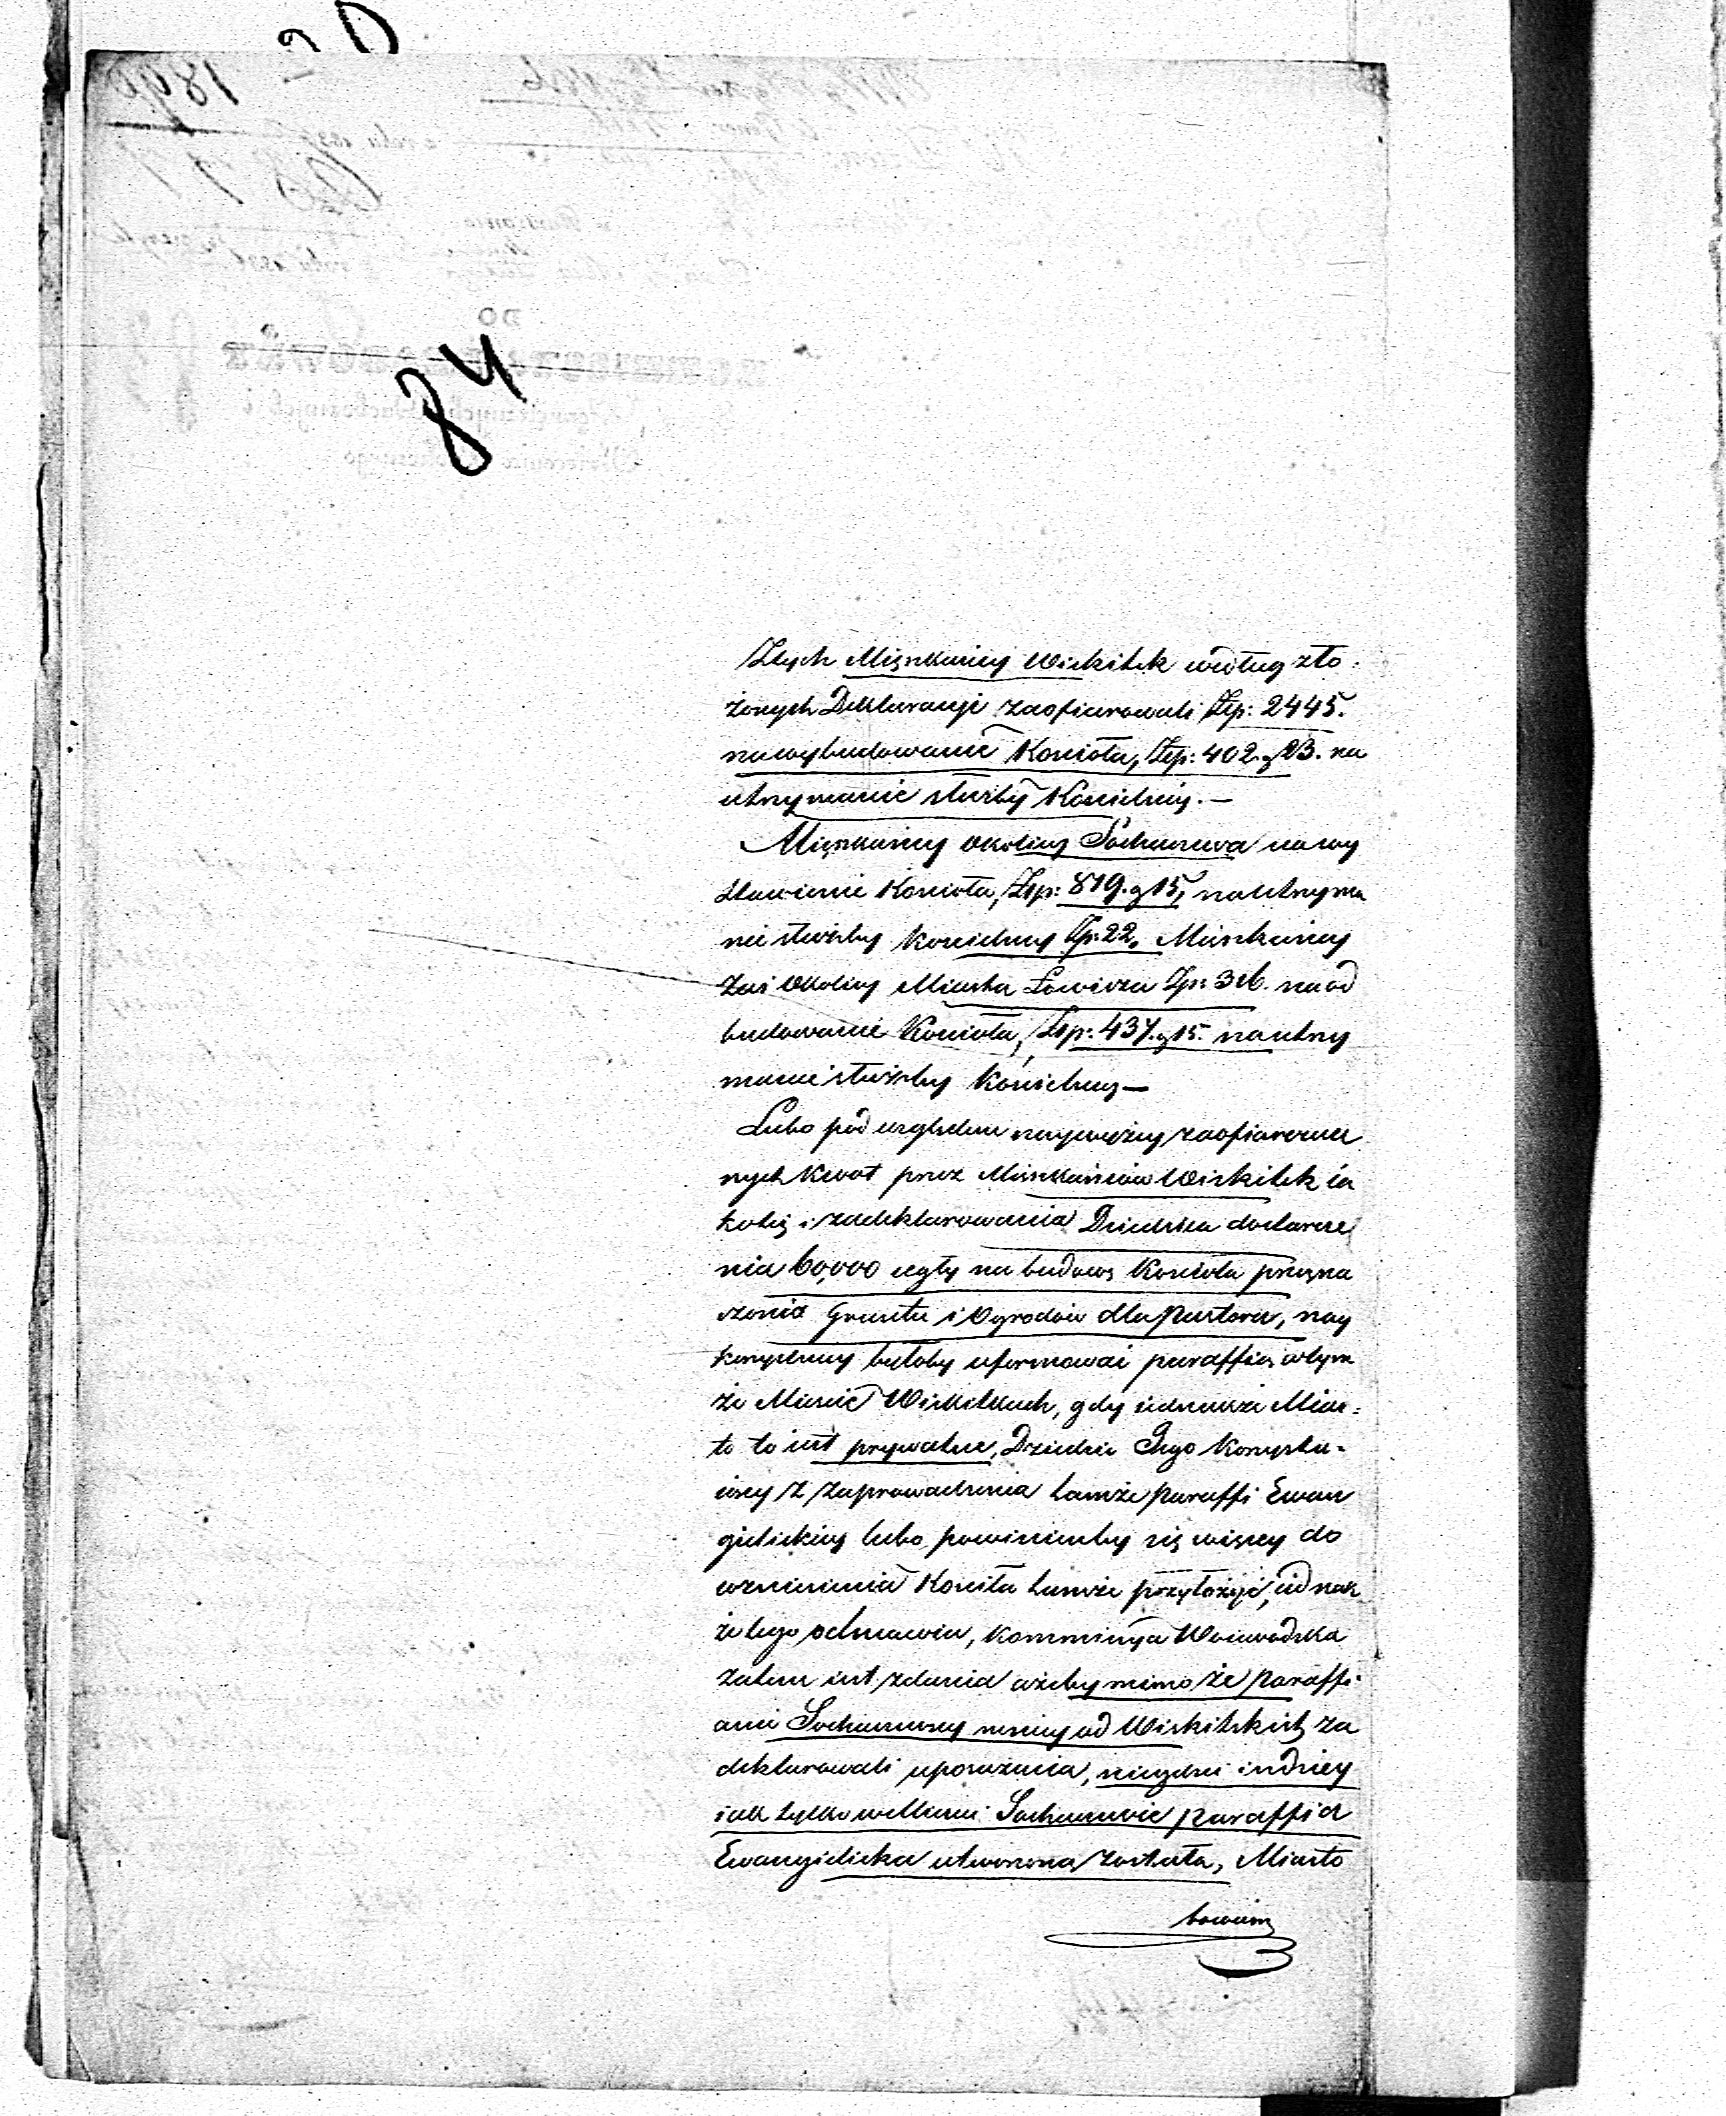 84
Ztych Mięszkańcy Wiskitek według zło-
żonych Deklaracyi zaofiarowali Złp: 2445.
na wybudowanie Kościoła, Złp: 402. g 23. na
utrzymanie służby Kościelnéy.—
Mięszkańcy okolicy Sochaczewa na wy
stawienie Kościoła, Złp: 819. g 15, na utrzyma
nie służby kościelney Zł: 22. Mieszkańcy
zaś okolicy Miasta Łowicza Zp: 316. na od
budowanie Kościoła, Złp: 437. g 15. na utrzy
manie służby kościelney—
Lubo pod względem zaofiarowa
nych kwot przez Mieszkańców Wiskitek ia
koteż i zadeklarowania Dziedzica dostarcze
nia 60,000 cegły na budowę kościoła przezna
czenia Gruntu i Ogrodów dla Pastora, nay
korzystniey byłoby uformować paraffię w tym
że Mieście Wiskitkach, gdy iednakże Mias-
to to iest prywatne, Dziedzic Jego korzysta-
iący z zaprowadzenia tamże Paraffi Ewan
gielickiey lubo powinienby się więcey do
wzniesienia Kościoła tamże przyłożyć, iednak
że tego odmawia, Kommissya Woiewódzka
zatem iest zdania ażeby mimo że Paraffi
anie Sochaczewscy mniey od Wiskitskich za
deklarowali uposażenia, nie gdzie indziey
iak tylko w Mieście Sochaczewie paraffia
Ewangielicka utworzona została, Miasto
bowiem